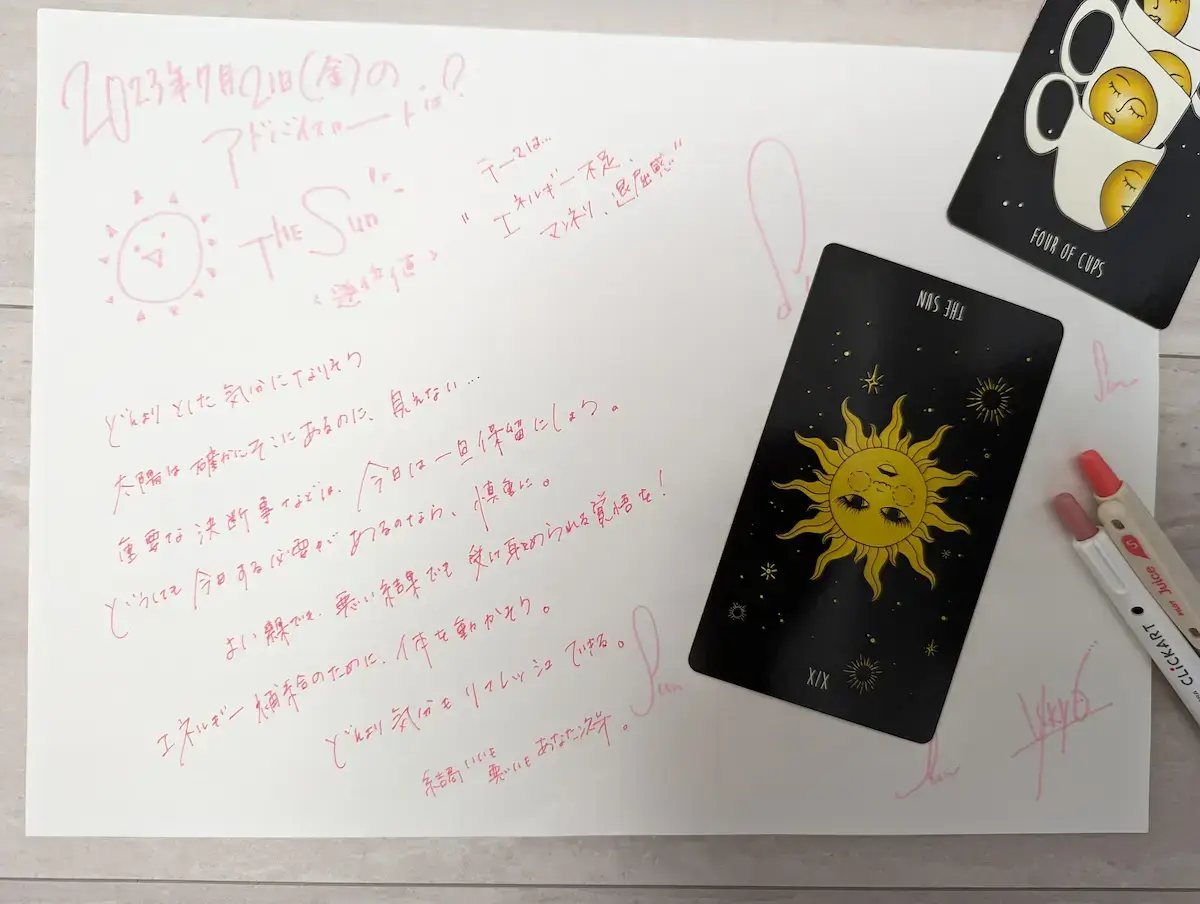 2023年7月21日(金)の
アドバイスカードは?
"THE SUN"
<逆位置>
テーマは…
"エネルギー不足、
マンネリ、退屈感"
どんよりとした気分になりそう
太陽は確かにそこにあるのに、見えない…
重要な決断事などは、今日は一旦保留にしよう。
どうしても今日する必要があるのなら、慎重に。
よい結果でも、悪い結果でも受け止められる覚悟を!
エネルギー補給のために、体を動かそう。
どんより気分もリフレッシュできる。
結局いいも
悪いもあなた次第。
FOUR OF CUPS
THE SUN
XIX
Juice
CLICKART